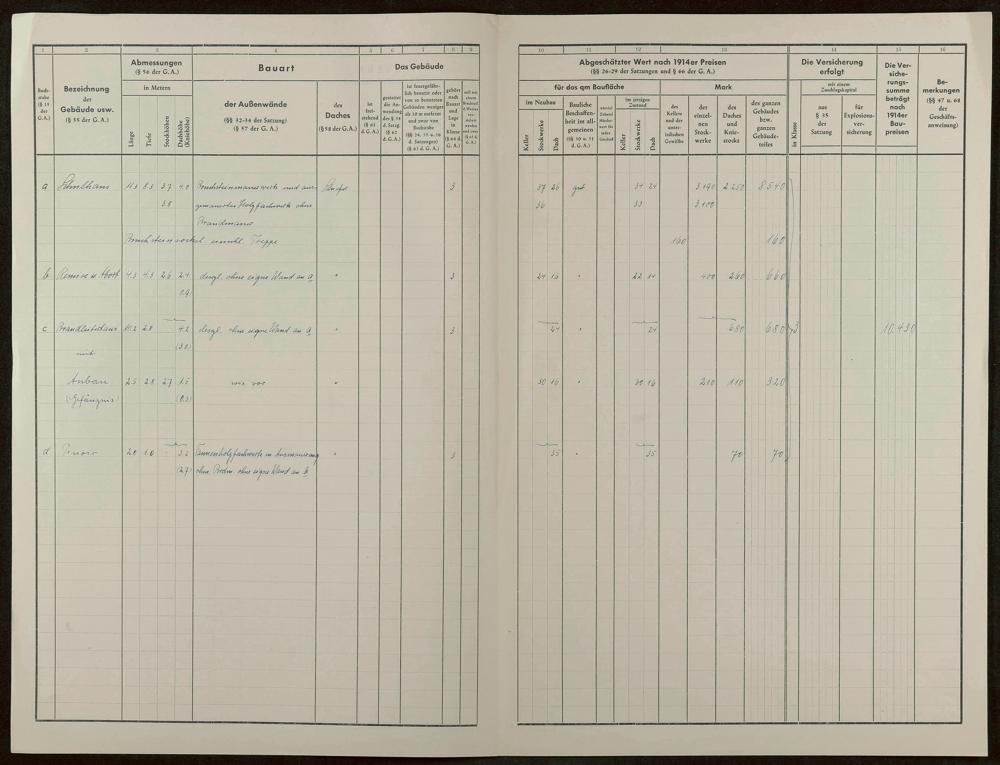 1 2 3 4 5 6 7 8 9
Buch-
stabe
(§ 19
der
G.A.)
Bezeichnung
der
Gebäude usw.
(§ 55 der G. A.)
Abmessungen
(§ 56 der G. A.)
in Metern
Länge
Tiefe
Stockhöhen
Dachhöhe
(Kniehöhe)
Bauart
der Außenwände
(§§ 32-34 der Satzung)
(§ 57 der G. A.)
des
Daches
(§ 58 der G. A.)
Das Gebäude
ist
frei-
stehend
(§ 61
d. G. A.)
gestattet
die An-
wendung
des § 34
d. Satzg.
(§ 62
d. G. A.)
ist feuergefähr-
lich benutzt oder
von so benutzten
Gebäuden weniger
als 10 m entfernt
und zwar von
Buchstabe
d. Satzungen)
(§ 63 d. G. A.)
gehört
nach
Bauart
und
Lage
in
Klasse
10 11 12 13 14 15 16
Abgeschätzter Wert nach 1914er Preisen
(§§ 26-29 der Satzungen und § 66 der G. A.)
für das qm Baufläche
Mark
im Neubau
Keller
Stockwerke
Dach
Bauliche
Beschaffen-
heit im all-
gemeinen
d. G. A.)
im jetzigen
Zustand
Keller
Stockwerke
Dach
des
Kellers
und der
unter-
irdischen
Gewölbe
der
einzel-
nen
Stock-
werke
des
Daches
und
Knie-
stocks
des ganzen
Gebäudes
bzw.
ganzen
Gebäude-
teiles
Die Versicherung
erfolgt
in Klasse
mit einem
Zuschlagskapital
aus
§ 35
der
Satzung
für
Explosions-
ver-
sicherung
Die Ver-
siche-
rungs-
summe
beträgt
nach
1914er
Bau-
preisen
Be-
merkungen
(§§ 47 u. 68
der
Geschäfts-
anweisung)
a Schulhaus 11.3 8.3 3.7 4.0 Bruchsteinmauerwerk und aus- 3 37 26 gut 34 24 3 190 2 250 8 540
3.8 gemauertes Holzfachwerk ohne 36 33 3 100
Brandmauer
Bruchsteinsockel einschl. Treppe 160 160
b Remise u. Abort 4.3 4.3 2.6 2.4 desgl. ohne eigne Wand an a " 3 24 16 " 22 14 400 260 660
(0.9)
c 10.2 2.8 4.2 desgl. ohne eigne Wand an a " 3 24 " 24 680 680 3 10.430
und (3.0)
Anbau 2.5 2.8 2.7 1.5 wie vor " 30 16 " 30 16 210 110 320
(Gefängnis) (0.3)
d 2.0 1.0 3.2 Tannenholzfachwerk m. Ausmauerung " 3 35 " 35 70 70
(2.7) ohne Brdm. ohne eigne Wand an b